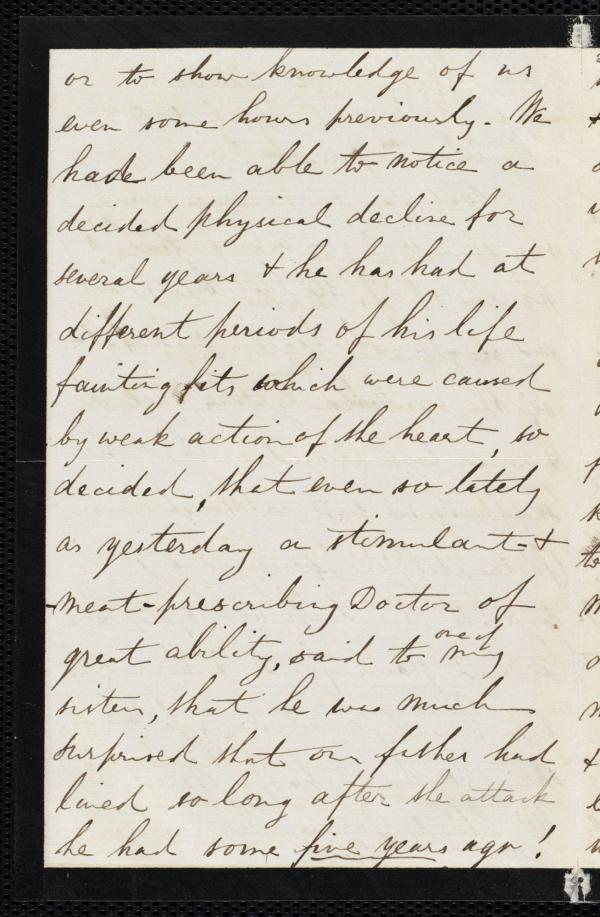 or to show knowledge of us
even some hours previously. We
have been able to notice a
decided physical decline for
several years & he has had at
different periods of his life
fainting fits which were caused
by weak action of the heart, so
decided, that even so lately
as yesterday a stimulant- &
-meat-prescribing Doctor of
great ability, said to one of my
sisters, that he was much
surprised that our father had
lived so long after the attack
he had some five years ago!